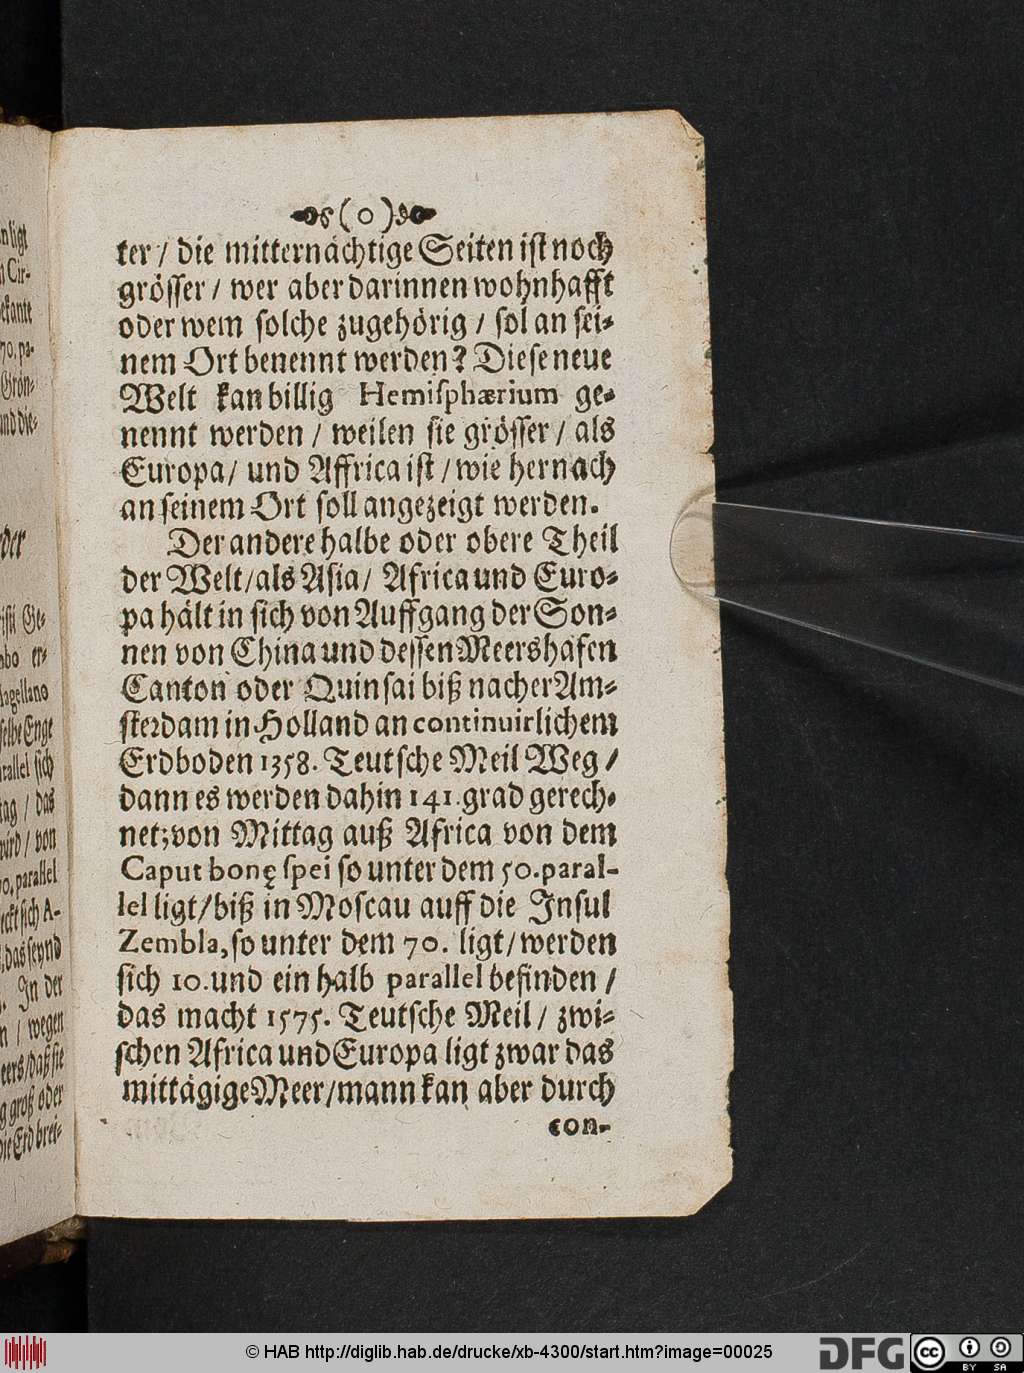 (0)
ter / die mitternächtige Seiten ist noch
grösser / wer aber darinnen wohnhafft
oder wem solche zugehörig / sol an sei-
nem Ort benennt werden? Diese neue
Welt kan billig Hemisphærium ge-
nennt werden / weilen sie grösser / als
Europa / und Affrica ist / wie hernach
an seinem Ort soll angezeigt werden.
Der andere halbe oder obere Theil
der Welt / als Asia / Africa und Euro-
pa hält in sich von Auffgang der Son-
nen von China und dessen Meershafen
Canton oder Quinsai biß nacher Am-
sterdam in Holland an continuirlichem
Erdboden 1358. Teutsche Meil Weg /
dann es werden dahin 141. grad gerech-
net; von Mittag auß Africa von dem
Caput bonę spei so unter dem 50. paral-
lel ligt / biß in Moscau auff die Insul
Zembla, so unter dem 70. ligt / werden
sich 10. und ein halb parallel befinden /
das macht 1575. Teutsche Meil / zwi-
schen Africa und Europa ligt zwar das
mittägige Meer / mann kan aber durch
con-
nligt
Cir-
ekante
70. pa-
Grön-
und die-
der
isti Ge-
mbo er-
Magellano
selbe Enge
parallel sich
tag / das
wird / von
70. parallel
eckt sich A-
, das seynd
. In der
n / wegen
eers / daß sie
g groß oder
die Erd brei-
© HAB http://diglib.hab.de/drucke/xb-4300/start.htm?image=00025
DFG
cc
BY SA